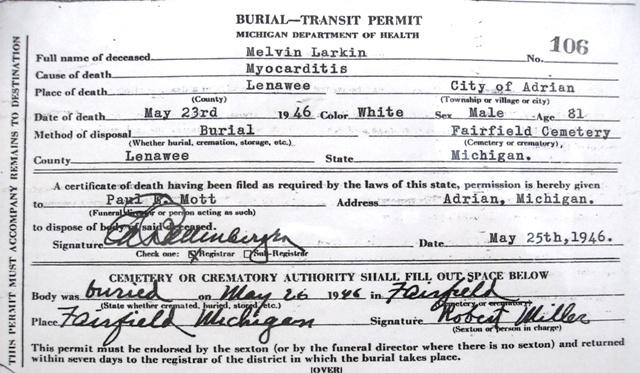 BURIAL—TRANSIT PERMIT
MICHIGAN DEPARTMENT OF HEALTH
106
Full name of deceased Melvin Larkin No.
Cause of death Myocarditis
Place of death Lenawee City of Adrian
(County) (Township or village or city)
Date of death May 23rd 1946 Color White Sex Male Age 81
Method of disposal Burial Fairfield Cemetery
(Whether burial, cremation, storage, etc.) (Cemetery or crematory)
County Lenawee State Michigan.
A certificate of death having been filed as required by the laws of this state, permission is hereby given
to Paul E. Mott Address Adrian, Michigan.
(Funeral director or person acting as such)
to dispose of body of said deceased.
Signature Date May 25th,1946.
Check one: Registrar Sub-Registrar
CEMETERY OR CREMATORY AUTHORITY SHALL FILL OUT SPACE BELOW
Body was buried on May 26 1946 in Fairfield
(State whether cremated, buried, stored, etc.) (Cemetery or crematory)
Place Fairfield Michigan Signature Robert Miller
(Sexton or person in charge)
This permit must be endorsed by the sexton (or by the funeral director where there is no sexton) and returned
within seven days to the registrar of the district in which the burial takes place.
[OVER]
THIS PERMIT MUST ACCOMPANY REMAINS TO DESTINATION